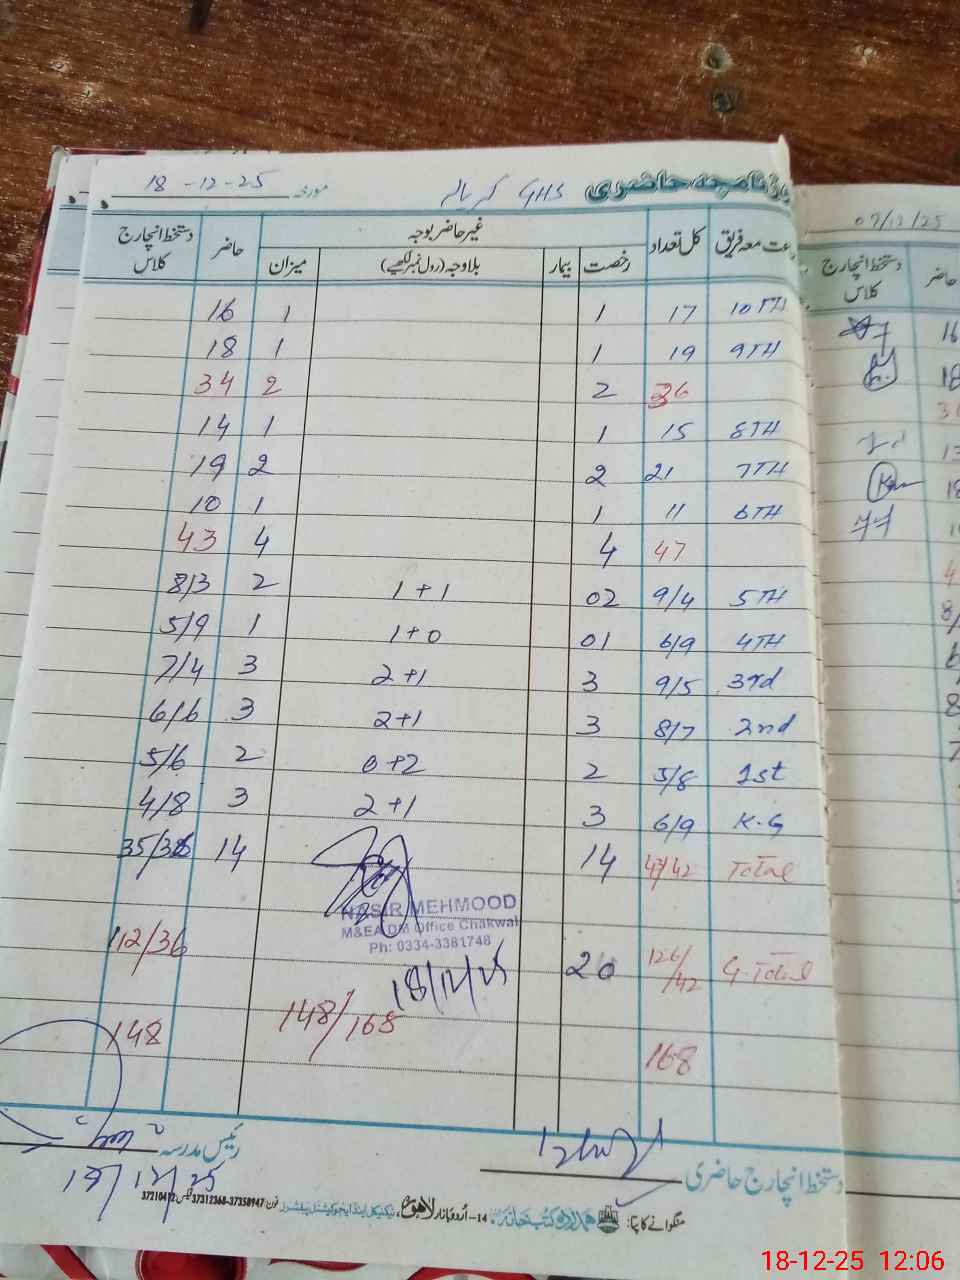 روزنامچہ حاضری GHS کریالہ مورخہ 18-12-25
جماعت معہ فریق کل تعداد غیر حاضر بوجہ حاضر دستخط انچارج کلاس
رخصت بیمار بلاوجہ (رول نمبر لکھیے) میزان
10TH 17 1 1 16
9TH 19 1 1 18
36 2 2 34
8TH 15 1 1 14
7TH 21 2 2 19
6TH 11 1 1 10
47 4 4 43
5TH 9/4 02 1+1 2 8/3
4TH 6/9 01 1+0 1 5/9
3rd 9/5 3 2+1 3 7/4
2nd 8/7 3 2+1 3 6/6
1st 5/8 2 0+2 2 5/6
K.G 6/9 3 2+1 3 4/8
Total 43/42 14 14 35/36
NASIR MEHMOOD
M&EA DM Office Chakwal
Ph: 0334-3381748
G.Total 126/42 20 18/12/25 112/36
168 148/168 148
دستخط انچارج حاضری رئیس مدرسہ
18/12/25
منگوانے کا پتا: ہمدرد کتب خانہ 14-اُردو بازار لاہور، فون: 37358947-37312368 فیکس: 37210412
07/12/25
دستخط انچارج کلاس
حاضر
18-12-25 12:06